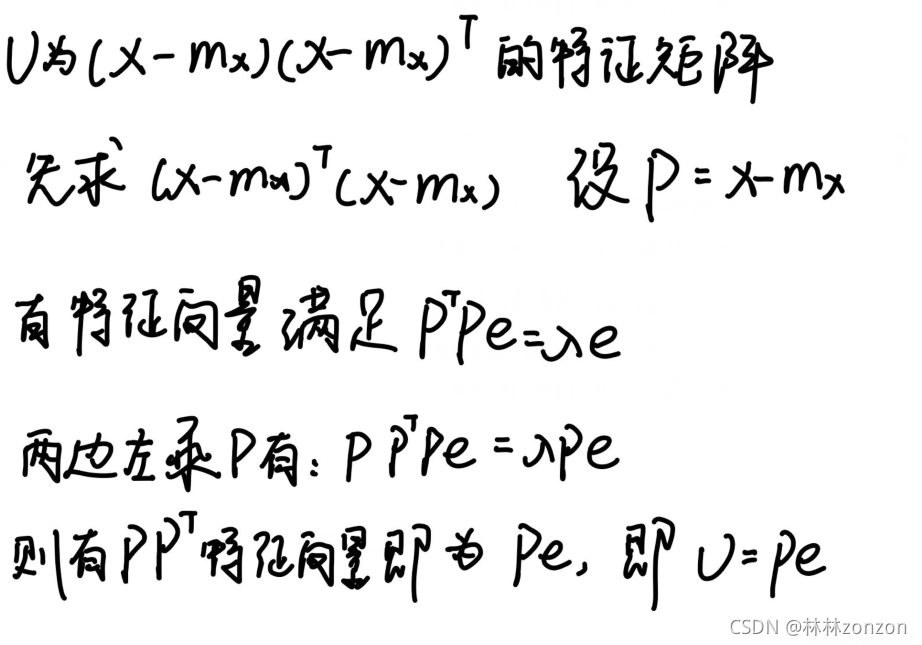 U为(X-mx)(X-mx)^T 的特征矩阵
先求 (X-mx)^T(X-mx) 设 P=X-mx
有特征向量满足 P^TPe=λe
两边左乘P有：PP^TPe=λPe
则有PP^T特征向量即为 Pe，即 U=Pe
CSDN @林林zonzon